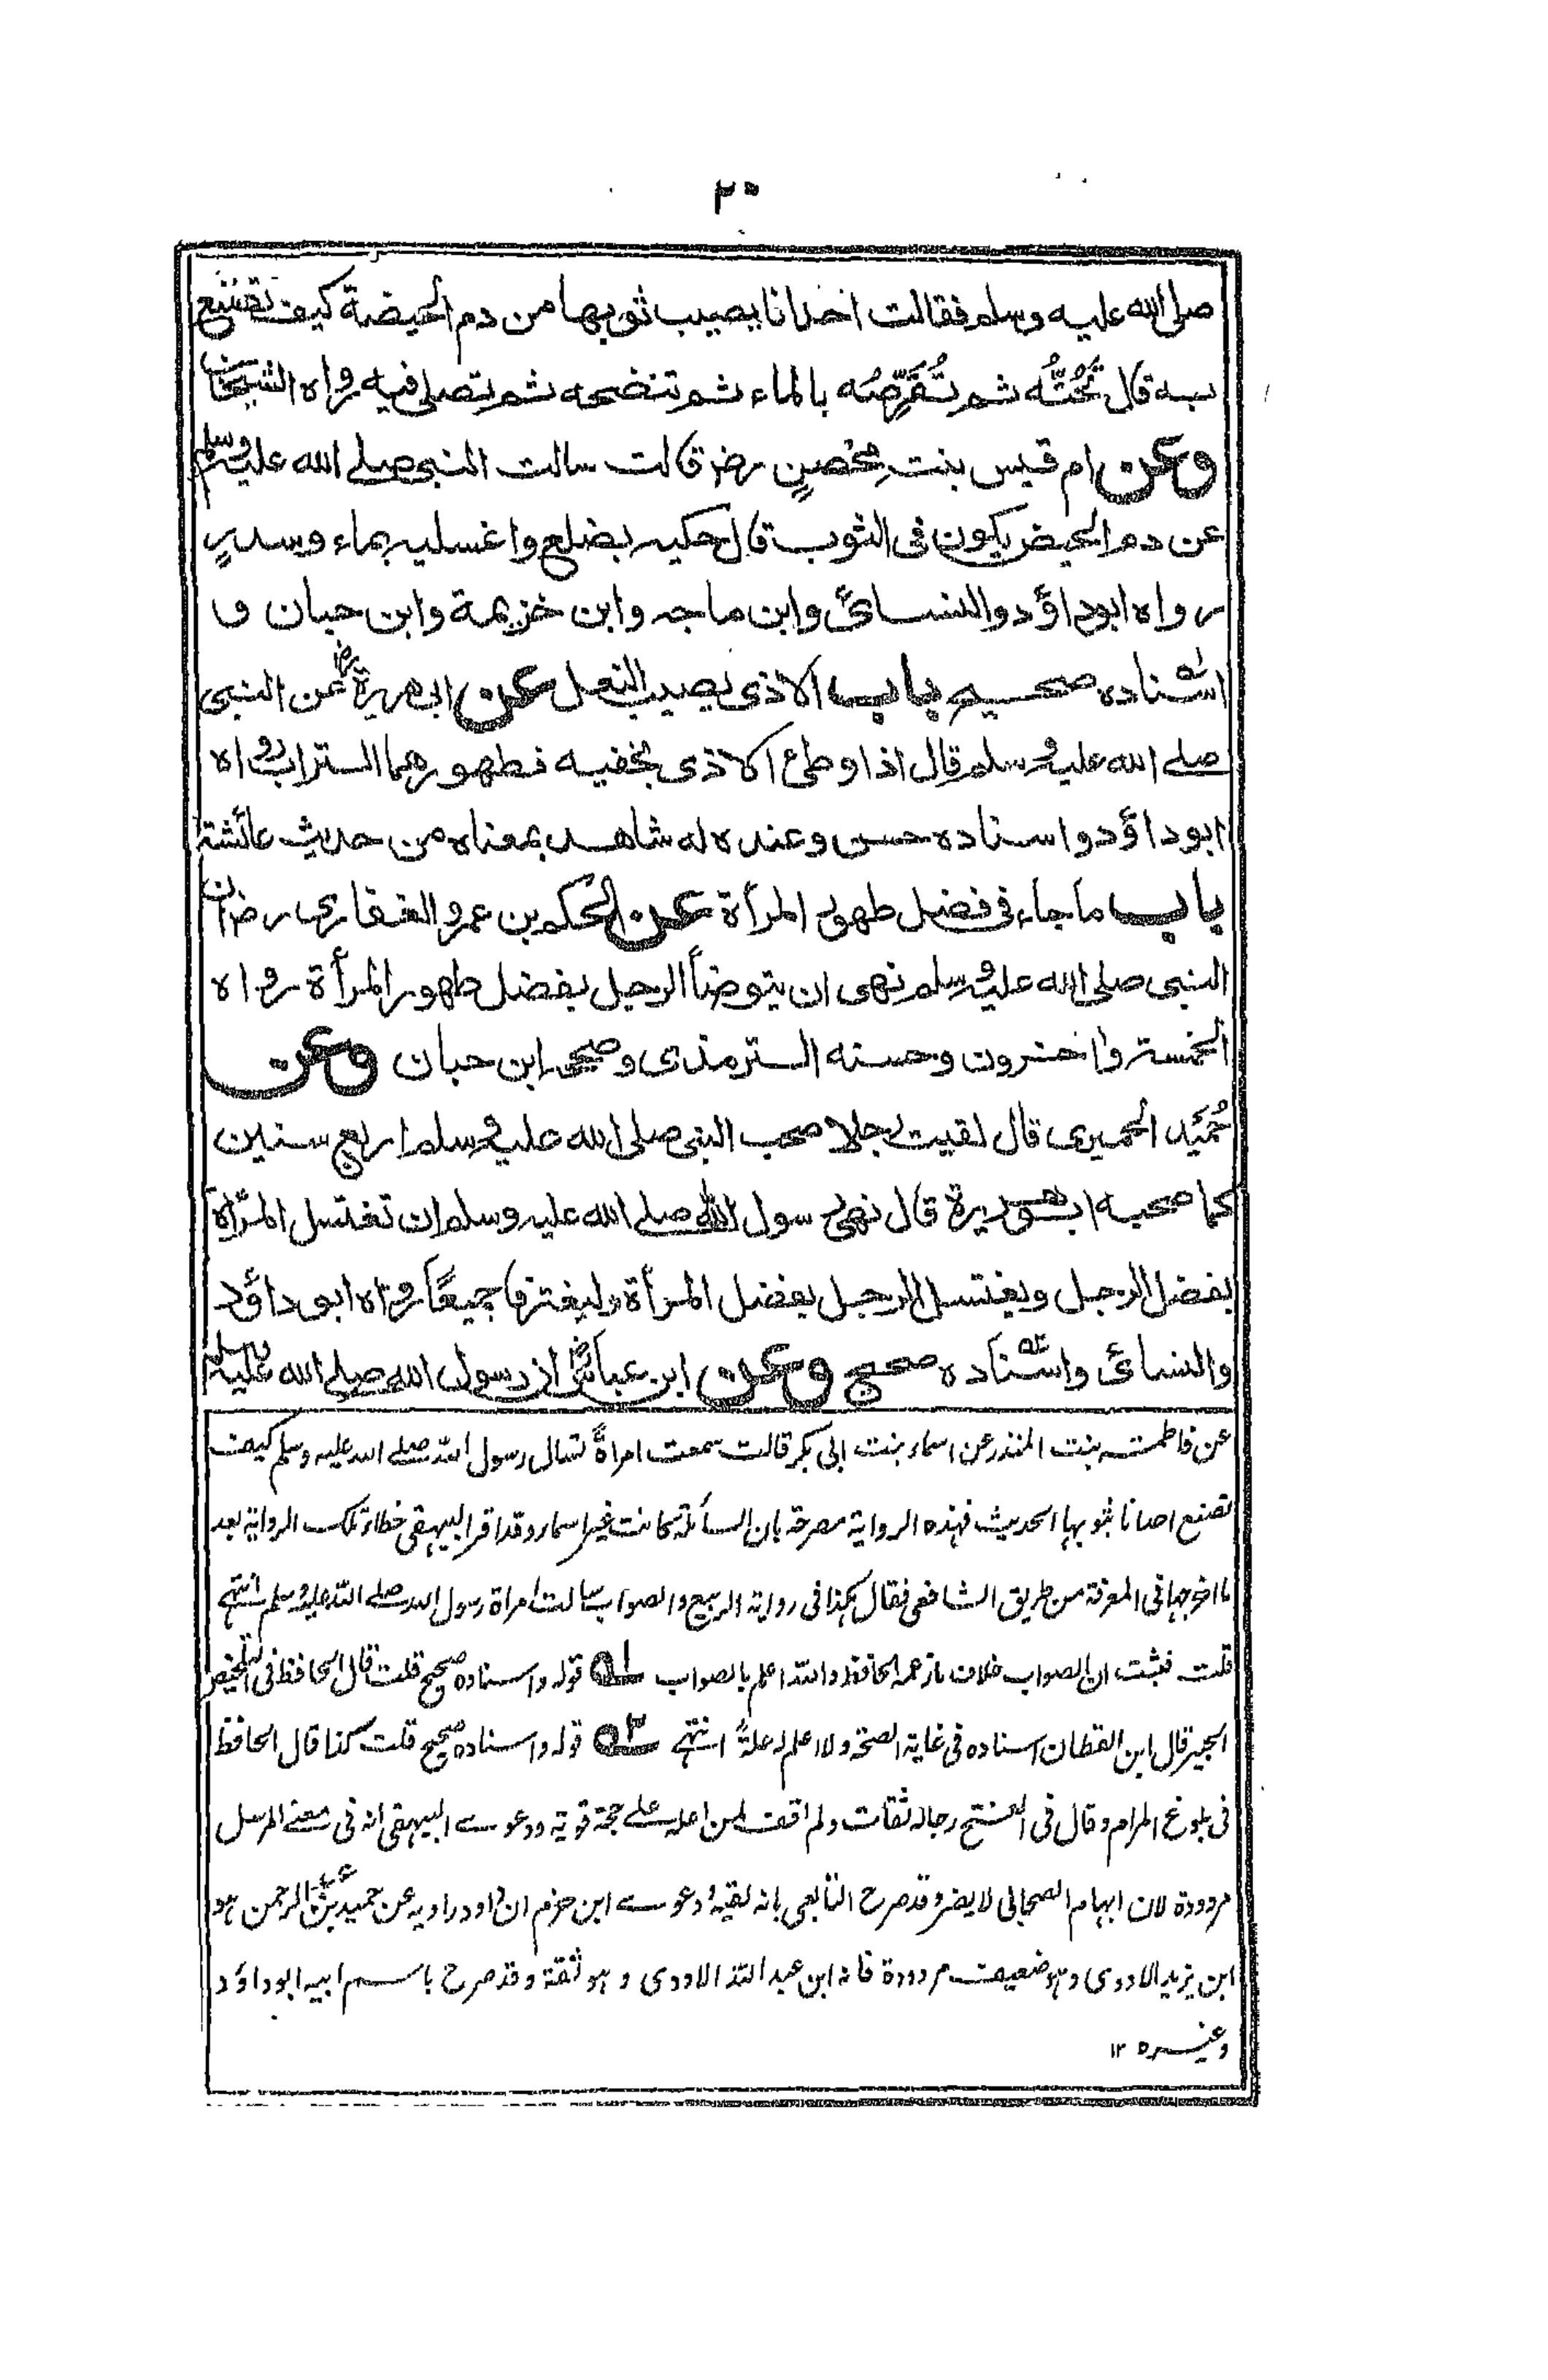 ٢٥
صلى الله عليه وسلم فقالت احدانا يصيب ثوبها من دم الحيضة كيف تصنع
به قال تَحُتُّه ثم تَقْرُصُه بالماء ثم تنضحه ثم تصلى فيه رواه الشيخان
وعن ام قيس بنت مِحْصنٍ رضـ قالت سالت النبى صلے الله عليه وسلم
عن دم الحيض يكون فى الثوب قال حكيه بضلع واغسليه بماء وسدرٍ
رواه ابوداؤد والنسائى وابن ماجه وابن خزيمة وابن حبان و
اسناده صحيح باب الاذى يصيب النعل عن ابى هريرة رضـ عن النبى
صلے الله عليه وسلم قال اذا وطئ الاذى بخفيه فطهورهما التراب رواه
ابوداؤد واسناده حسن وعنده له شاهد بمعناه من حديث عائشة
باب ما جاء فى فضل طهور المرأة عن الحكم بن عمرو الغفارى رضـ ان
النبى صلى الله عليه وسلم نهى ان يتوضأ الرجل بفضل طهور المرأة رواه
الخمسة واخرون وحسنه الترمذى وصححه ابن حبان وعن
حُمَيْد الحميرى قال لقيت رجلا صحب النبى صلى الله عليه وسلم اربع سنين
كما صحبه ابوهريرة قال نهى رسول الله صلے الله عليه وسلم ان تغتسل المرأة
بفضل الرجل ويغتسل الرجل بفضل المرأة وليغترفا جميعًا رواه ابو داؤد
والنسائى واسناده ٢ صحيح وعن ابن عباس رضـ ان رسول الله صلے الله عليه وسلم
عن فاطمة بنت المنذر عن اسماء بنت ابى بكر قالت سمعت امراةً تسال رسول الله صلے الله عليه وسلم كيف
تصنع احدانا بثوبها الحديث فهذه الرواية مصرحة بان السائلة كانت غير اسماء وقد اقر البيهقى خطاء تلك الرواية بعد
ما اخرجها فى المعرفة من طريق الشافعى فقال هكذا فى رواية الربيع والصواب سالت امراة رسول الله صلے الله عليه وسلم انتهے
قلت فثبت ان الصواب خلاف ما زعمه الحافظ والله اعلم بالصواب ١ قوله واسناده صحيح قلت قال الحافظ فى التلخيص
الحبير قال ابن القطان اسناده فى غاية الصحة ولا اعلم له علةً انتهے ٢ قوله واسناده صحيح قلت كذا قال الحافظ
فى بلوغ المرام وقال فى الفتح رجاله ثقات ولم اقف لمن اعله على حجة قوية ودعوے البيهقى انه فى معنے المرسل
مردودة لان ابهام الصحابى لا يضر وقد صرح التابعى بانه لقيه ودعوے ابن حزم ان داود راويه عن حميد بن عبد الرحمن هو
ابن يزيد الاودى وهو ضعيف مردودة فانه ابن عبد الله الاودى وهو ثقة وقد صرح باسم ابيه ابوداؤد
وغيره ١٢